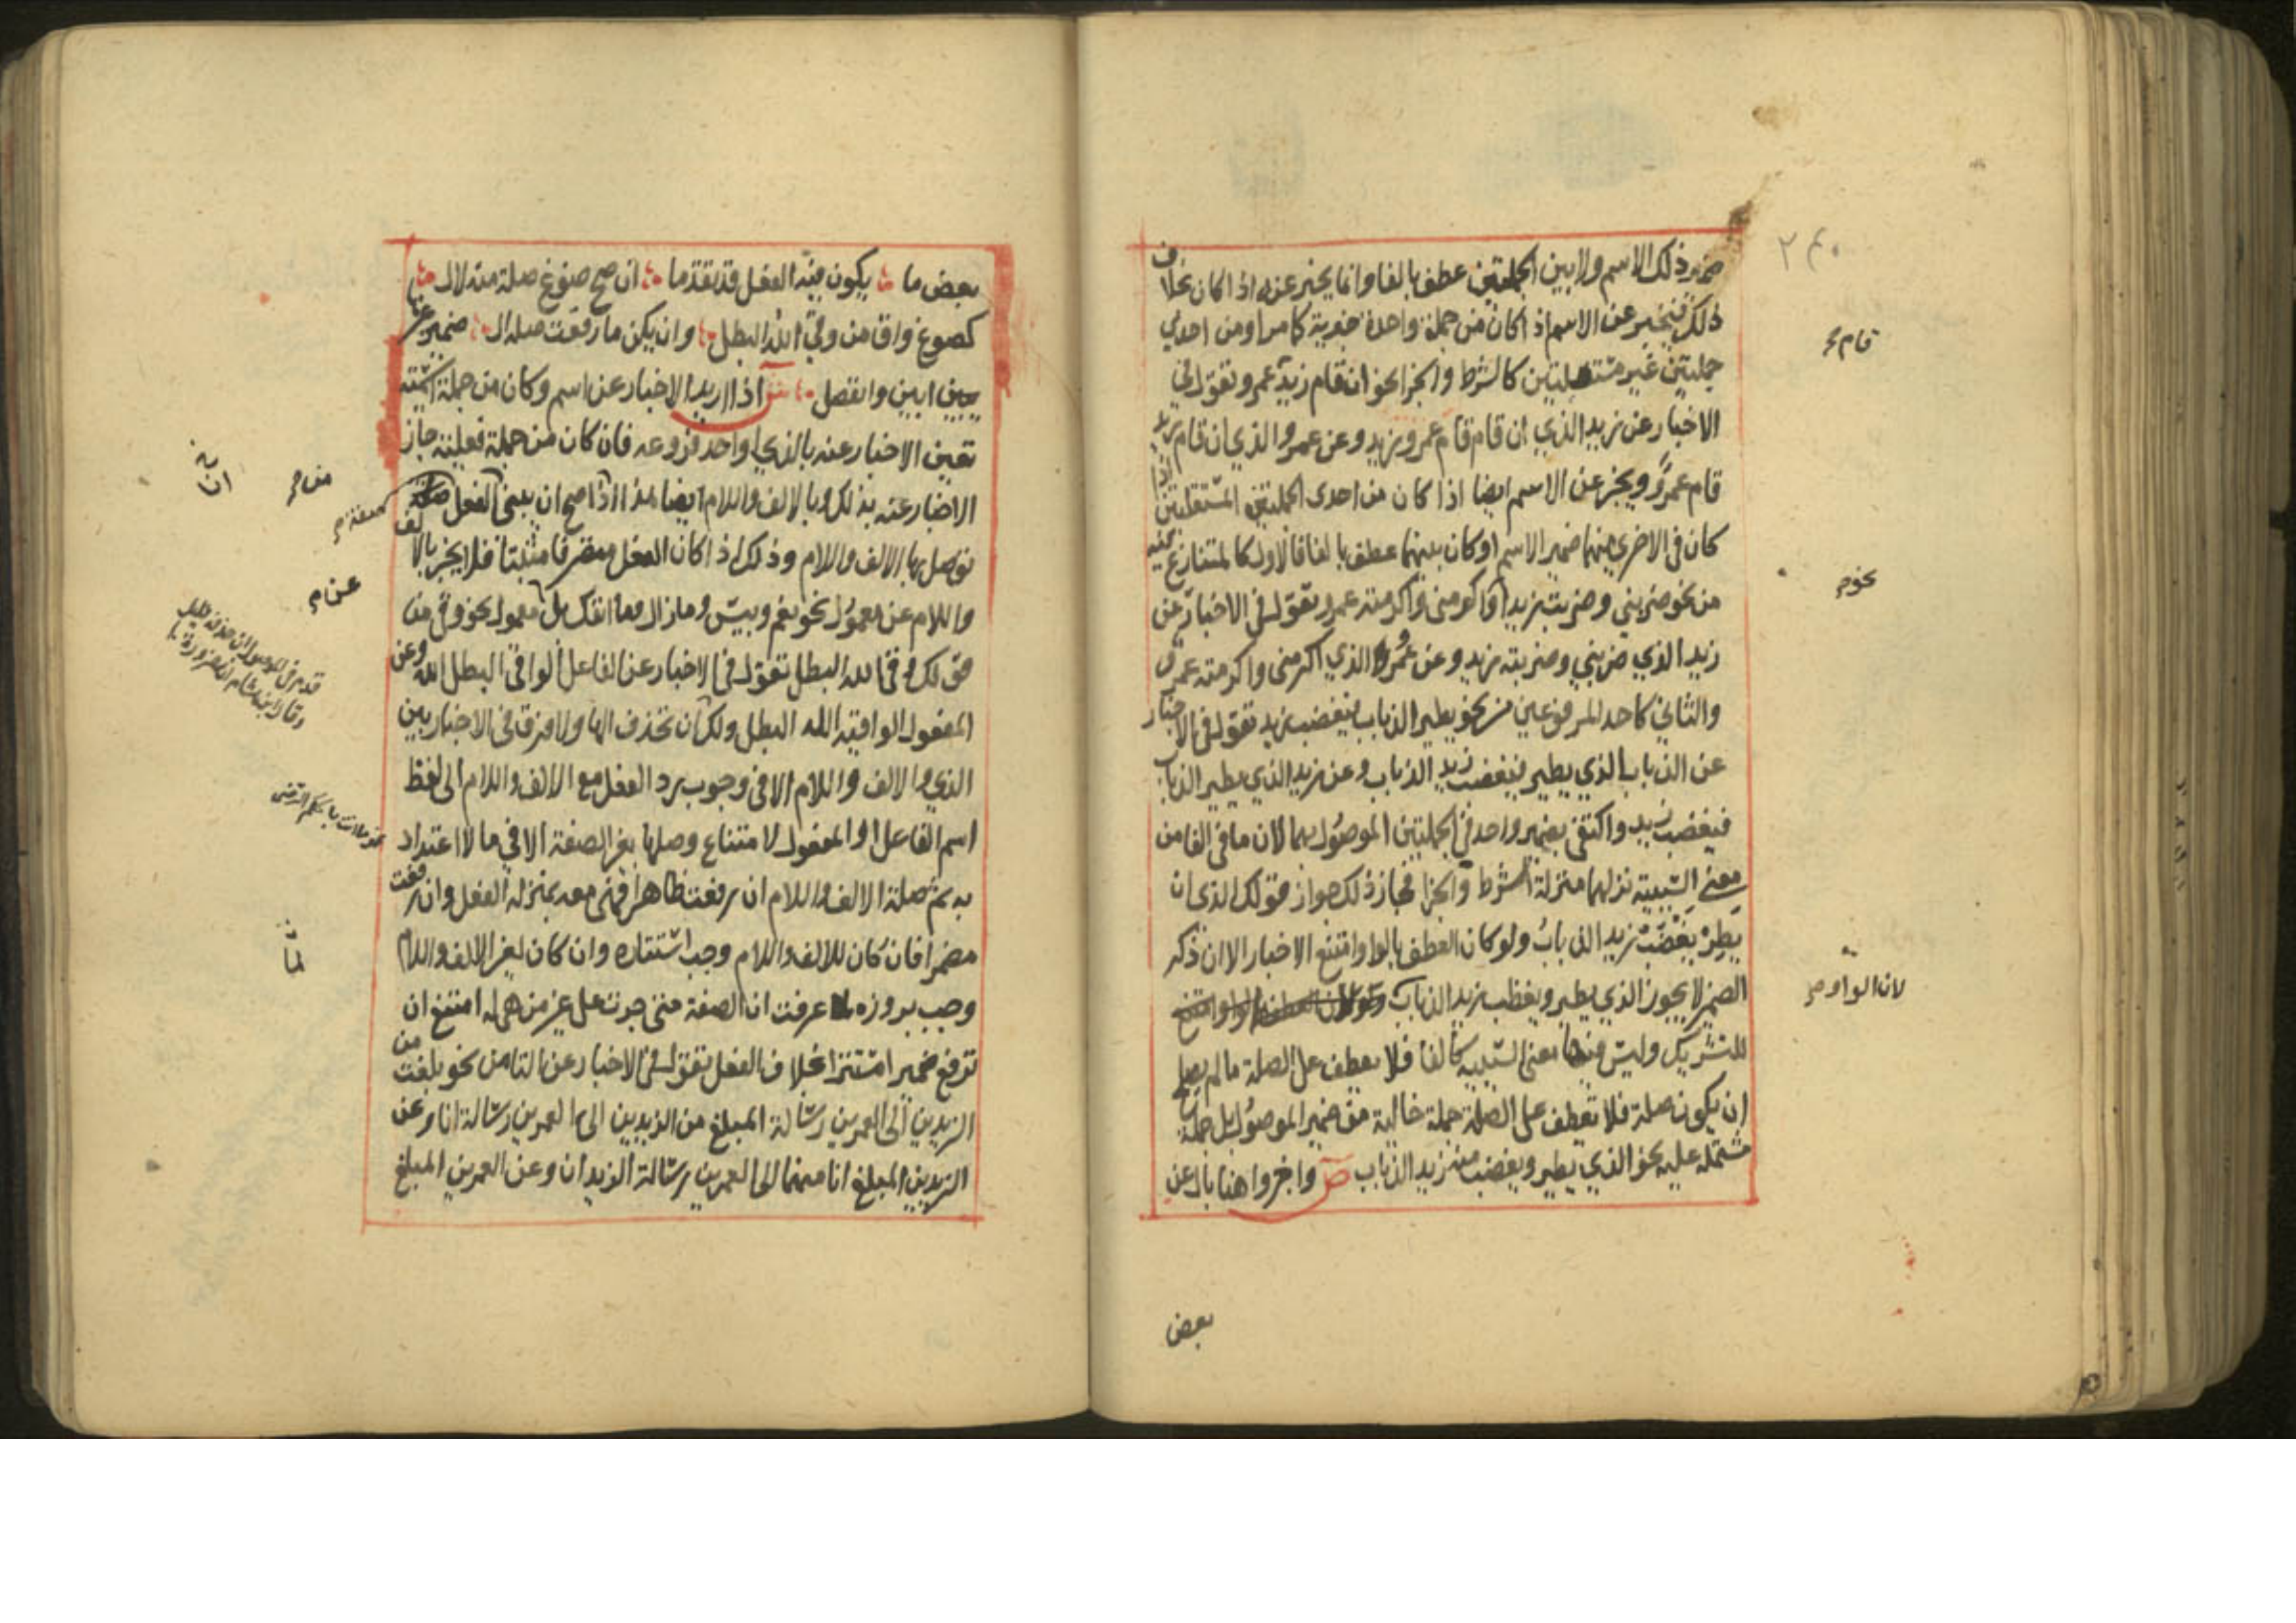 ٢٤٠
ضمير ذلك الاسم ولا بين الجملتين عطف بالفا وانما يخبر عنه اذا كان بخلاف
ذلك فيخبر عن الاسم اذا كان من جملة واحدة خبرية كما مر او من احدي
جملتين غير مستقلتين كالشرط والجزا نحو ان قام زيد عمرو تقول في
قام صح
الاخبار عن زيد الذي ان قام قام عمرو زيد وعن عمرو الذي ان قام زيد
قام عمرو ويخبر عن الاسم ايضا اذا كان من احدى الجملتين المستقلتين اذا
كان في الاخرى منهما ضمير الاسم او كان بينهما عطف بالفا فالاول كالمتنازع فيه
من نحو ضربني وضربت زيدا واكرمني واكرمته عمرو تقول في الاخبار عن
نحو صح
زيد الذي ضربني وضربته زيد وعن عمرو الذي اكرمني واكرمته عمرو
والثاني كاحد المرفوعين من نحو يطير الذباب فيغضب زيد تقول في الاخبار
عن الذباب الذي يطير فيغضب زيد الذباب وعن زيد الذي يطير الذباب
فيغضب زيد واكتفى بضمير واحد في الجملتين الموصول بهما لان ما في الفا من
معنى السببية نزلهما منزلة الشرط والجزا فجاز ذلك جواز قولك الذى ان
يطر يغضب زيد الذباب ولو كان العطف بالواو امتنع الاخبار الا ان ذكر
الضمير لا يجوز الذي يطير ويغضب زيد الذباب ولو كان العطف بالواو امتنع
لان الواو صح
للتشريك وليس فيها معنى السببيه كالفا فلا يعطف على الصلة ما لم يصلح
ان يكون صلة فلا تعطف على الصلة جملة خالية من ضمير الموصول بل جملة
مشتملة عليه نحو الذي يطير ويغضب منه زيد الذباب ص واخبروا هنا بال عن
بعض
بعض ما يكون فيه الفعل قد تقدما ان صح صوغ صلة منه لال
كصوغ واق من وقى الله البطل وان يكن ما رفعت صلة ال ضمير غيرها
ابين وانفصل ش اذا اريد الاخبار عن اسم وكان من جملة اسمية
تعين الاخبار عنه بالذي او احد فروعه فان كان من جملة فعلية جاز
الاخبار عنه بذلك وبالالف واللام ايضا هذا اذا صح ان يبنى الفعل صفة
من صح
توصل بها الالف واللام وذلك اذا كان الفعل متصرفا مثبتا فلا يخبر بالالف
واللام عن معمول نحو نعم وبيس وما زال وما انفك بل عن معمول نحو وقى من
عن صح
قولك وقى الله البطل تقول في الاخبار عن الفاعل الواقي البطل الله وعن
المفعول الواقيه الله البطل ولك ان تحذف الها ولا فرق في الاخبار بين
الذي والالف واللام الا في وجوب رد الفعل مع الالف واللام الى لفظ
اسم الفاعل او المفعول لامتناع وصلها بغير الصفة الا في ما لا اعتداد
به ثم صلة الالف واللام ان رفعت ظاهرا فهي معه بمنزلة الفعل وان رفعت
مضمرا فان كان للالف واللام وجب استتاره وان كان لغير الالف واللام
وجب بروزه لما عرفت ان الصفة متى جرت على غير من هي له امتنع ان
ترفع ضميرا مستترا بخلاف الفعل تقول في الاخبار عن التا من نحو بلغت من
الزيدين الى العمرين رسالة المبلغ من الزيدين الى العمرين رسالة انا وعن
الزيدين المبلغ انا منهما الى العمرين رسالة الزيدان وعن العمرين المبلغ